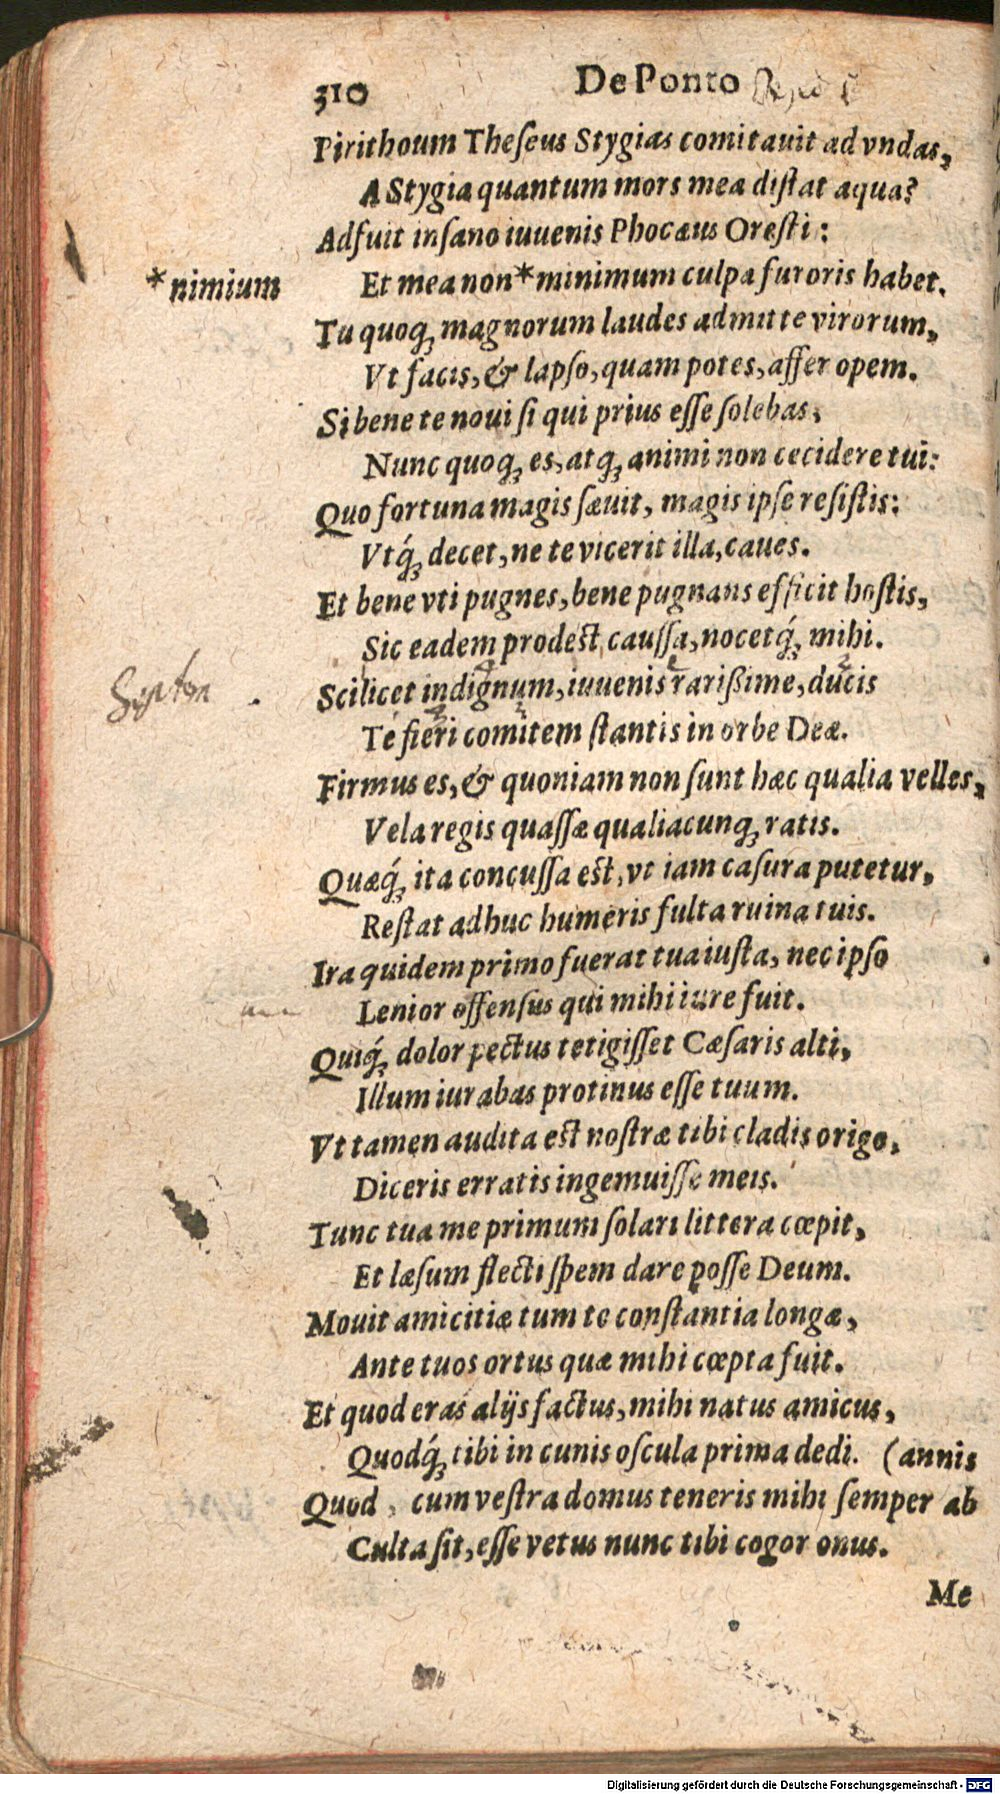 310 De Ponto
Pirithoum Theseus Stygias comitauit ad vndas,
A Stygia quantum mors mea distat aqua?
Adfuit insano iuuenis Phocæus Oresti:
*nimium Et mea non *minimum culpa furoris habet.
Tu quoq; magnorum laudes admitte virorum,
Vt facis, & lapso, quam potes, affer opem.
Si bene te noui si qui prius esse solebas,
Nunc quoq; es, atq; animi non cecidere tui:
Quo fortuna magis sæuit, magis ipse resistis:
Vtq́; decet, ne te vicerit illa, caues.
Et bene vti pugnes, bene pugnans efficit hostis,
Sic eadem prodest caussa, nocetq́; mihi.
Scilicet indignum, iuuenis rarißime, ducis
Te fieri comitem stantis in orbe Deæ.
Firmus es, & quoniam non sunt hæc qualia velles,
Vela regis quassæ qualiacunq; ratis.
Quæq́; ita concussa est, vt iam casura putetur,
Restat adhuc humeris fulta ruina tuis.
Ira quidem primo fuerat tua iusta, nec ipso
Lenior offensus qui mihi iure fuit.
Quiq́; dolor pectus tetigisset Cæsaris alti,
Illum iurabas protinus esse tuum.
Vt tamen audita est nostræ tibi cladis origo,
Diceris erratis ingemuisse meis.
Tunc tua me primum solari littera cœpit,
Et læsum flecti spem dare posse Deum.
Mouit amicitiæ tum te constantia longæ,
Ante tuos ortus quæ mihi cœpta fuit.
Et quod eras alijs factus, mihi natus amicus,
Quodq́; tibi in cunis oscula prima dedi. (annis
Quod, cum vestra domus teneris mihi semper ab
Culta sit, esse vetus nunc tibi cogor onus.
Me
Digitalisierung gefördert durch die Deutsche Forschungsgemeinschaft - DFG